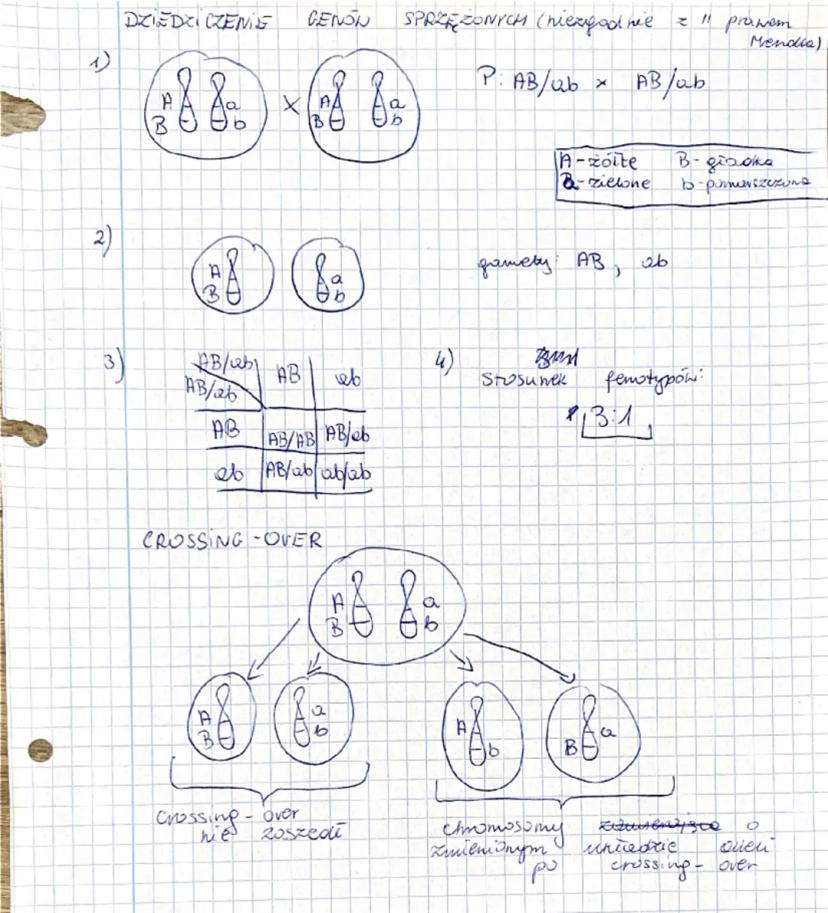 DZIEDZICZENIE GENÓW SPRZĘŻONYCH (niezgodnie z II prawem Mendla)
1)
A a
B b
×
A a
B b
P: AB/ab × AB/ab
A-żółte B-gładka
a-zielone b-pomarszczona
2)
A
B
a
b
gamety: AB, ab
3)
AB/ab AB ab
AB/ab
AB AB/AB AB/ab
ab AB/ab ab/ab
4)
Stosunek fenotypów:
3:1
CROSSING-OVER
A a
B b
A
B
a
b
A
b
a
B
crossing-over
nie zaszedł
chromosomy o
zmienionym układzie alleli
po crossing-over